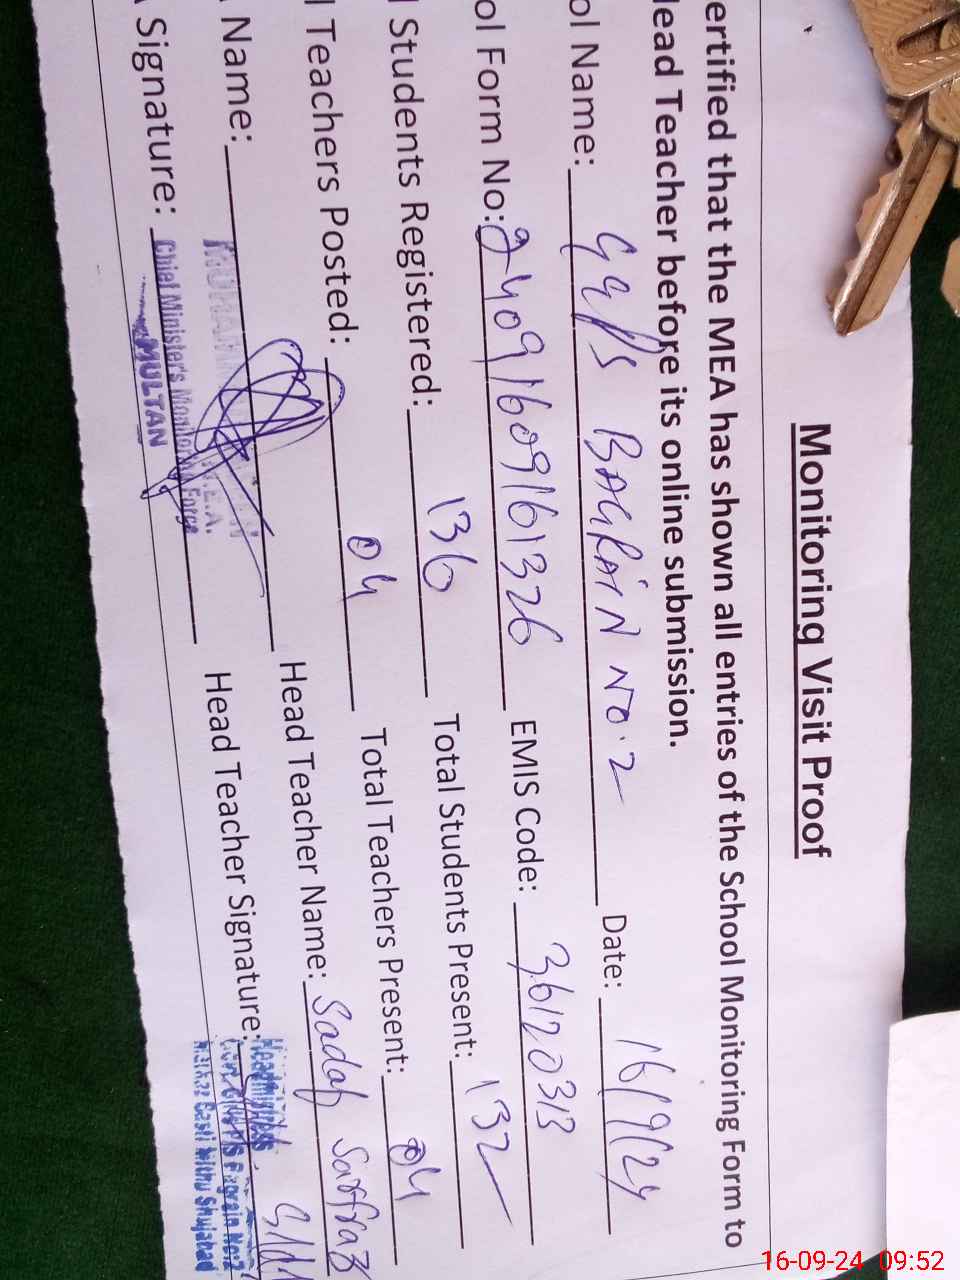 Monitoring Visit Proof
ertified that the MEA has shown all entries of the School Monitoring Form to
lead Teacher before its online submission.
ol Name: GGPS BAGRAIN NO.2 Date: 16/9/24
ol Form No: 24091609161326 EMIS Code: 36120313
Students Registered: 136 Total Students Present: 132
Teachers Posted: 04 Total Teachers Present: 04
Name: Head Teacher Name: Sadaf Sarfraz
Signature: Head Teacher Signature:
Chief Minister's Monitoring Force
MULTAN
Headmistress
Govt. G/PS Bagrain No:2
Markaz Basti Mithu Shujabad
16-09-24 09:52